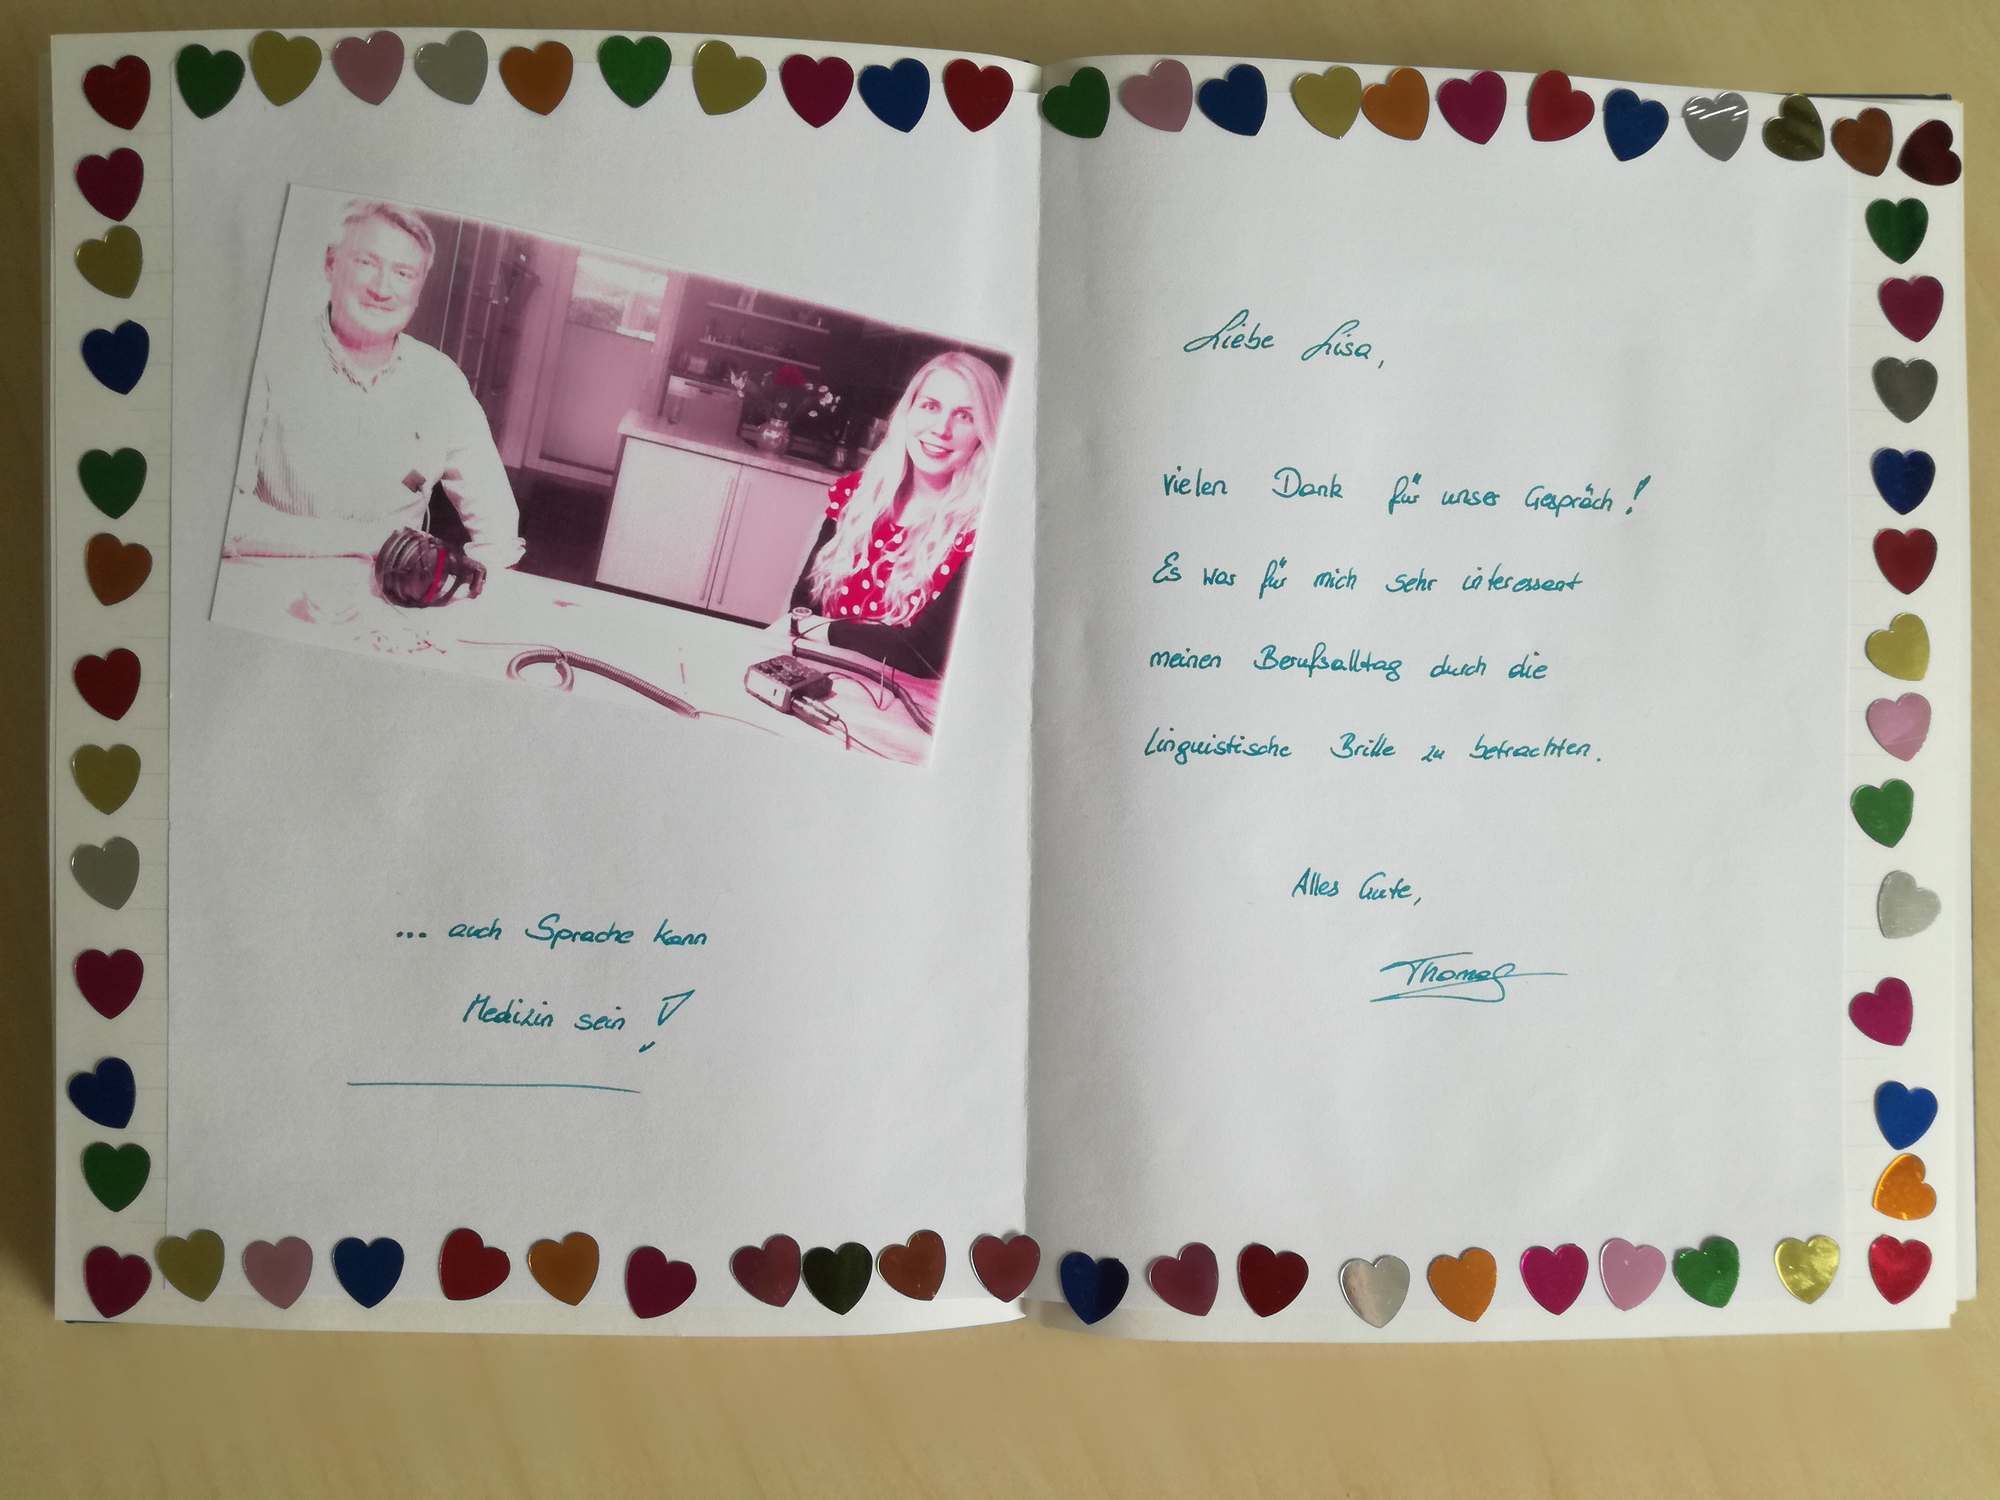 ... auch Sprache kann
Medizin sein!
Liebe Lisa,
vielen Dank für unser Gespräch!
Es war für mich sehr interessant
meinen Berufsalltag durch die
linguistische Brille zu betrachten.
Alles Gute,
Thomas